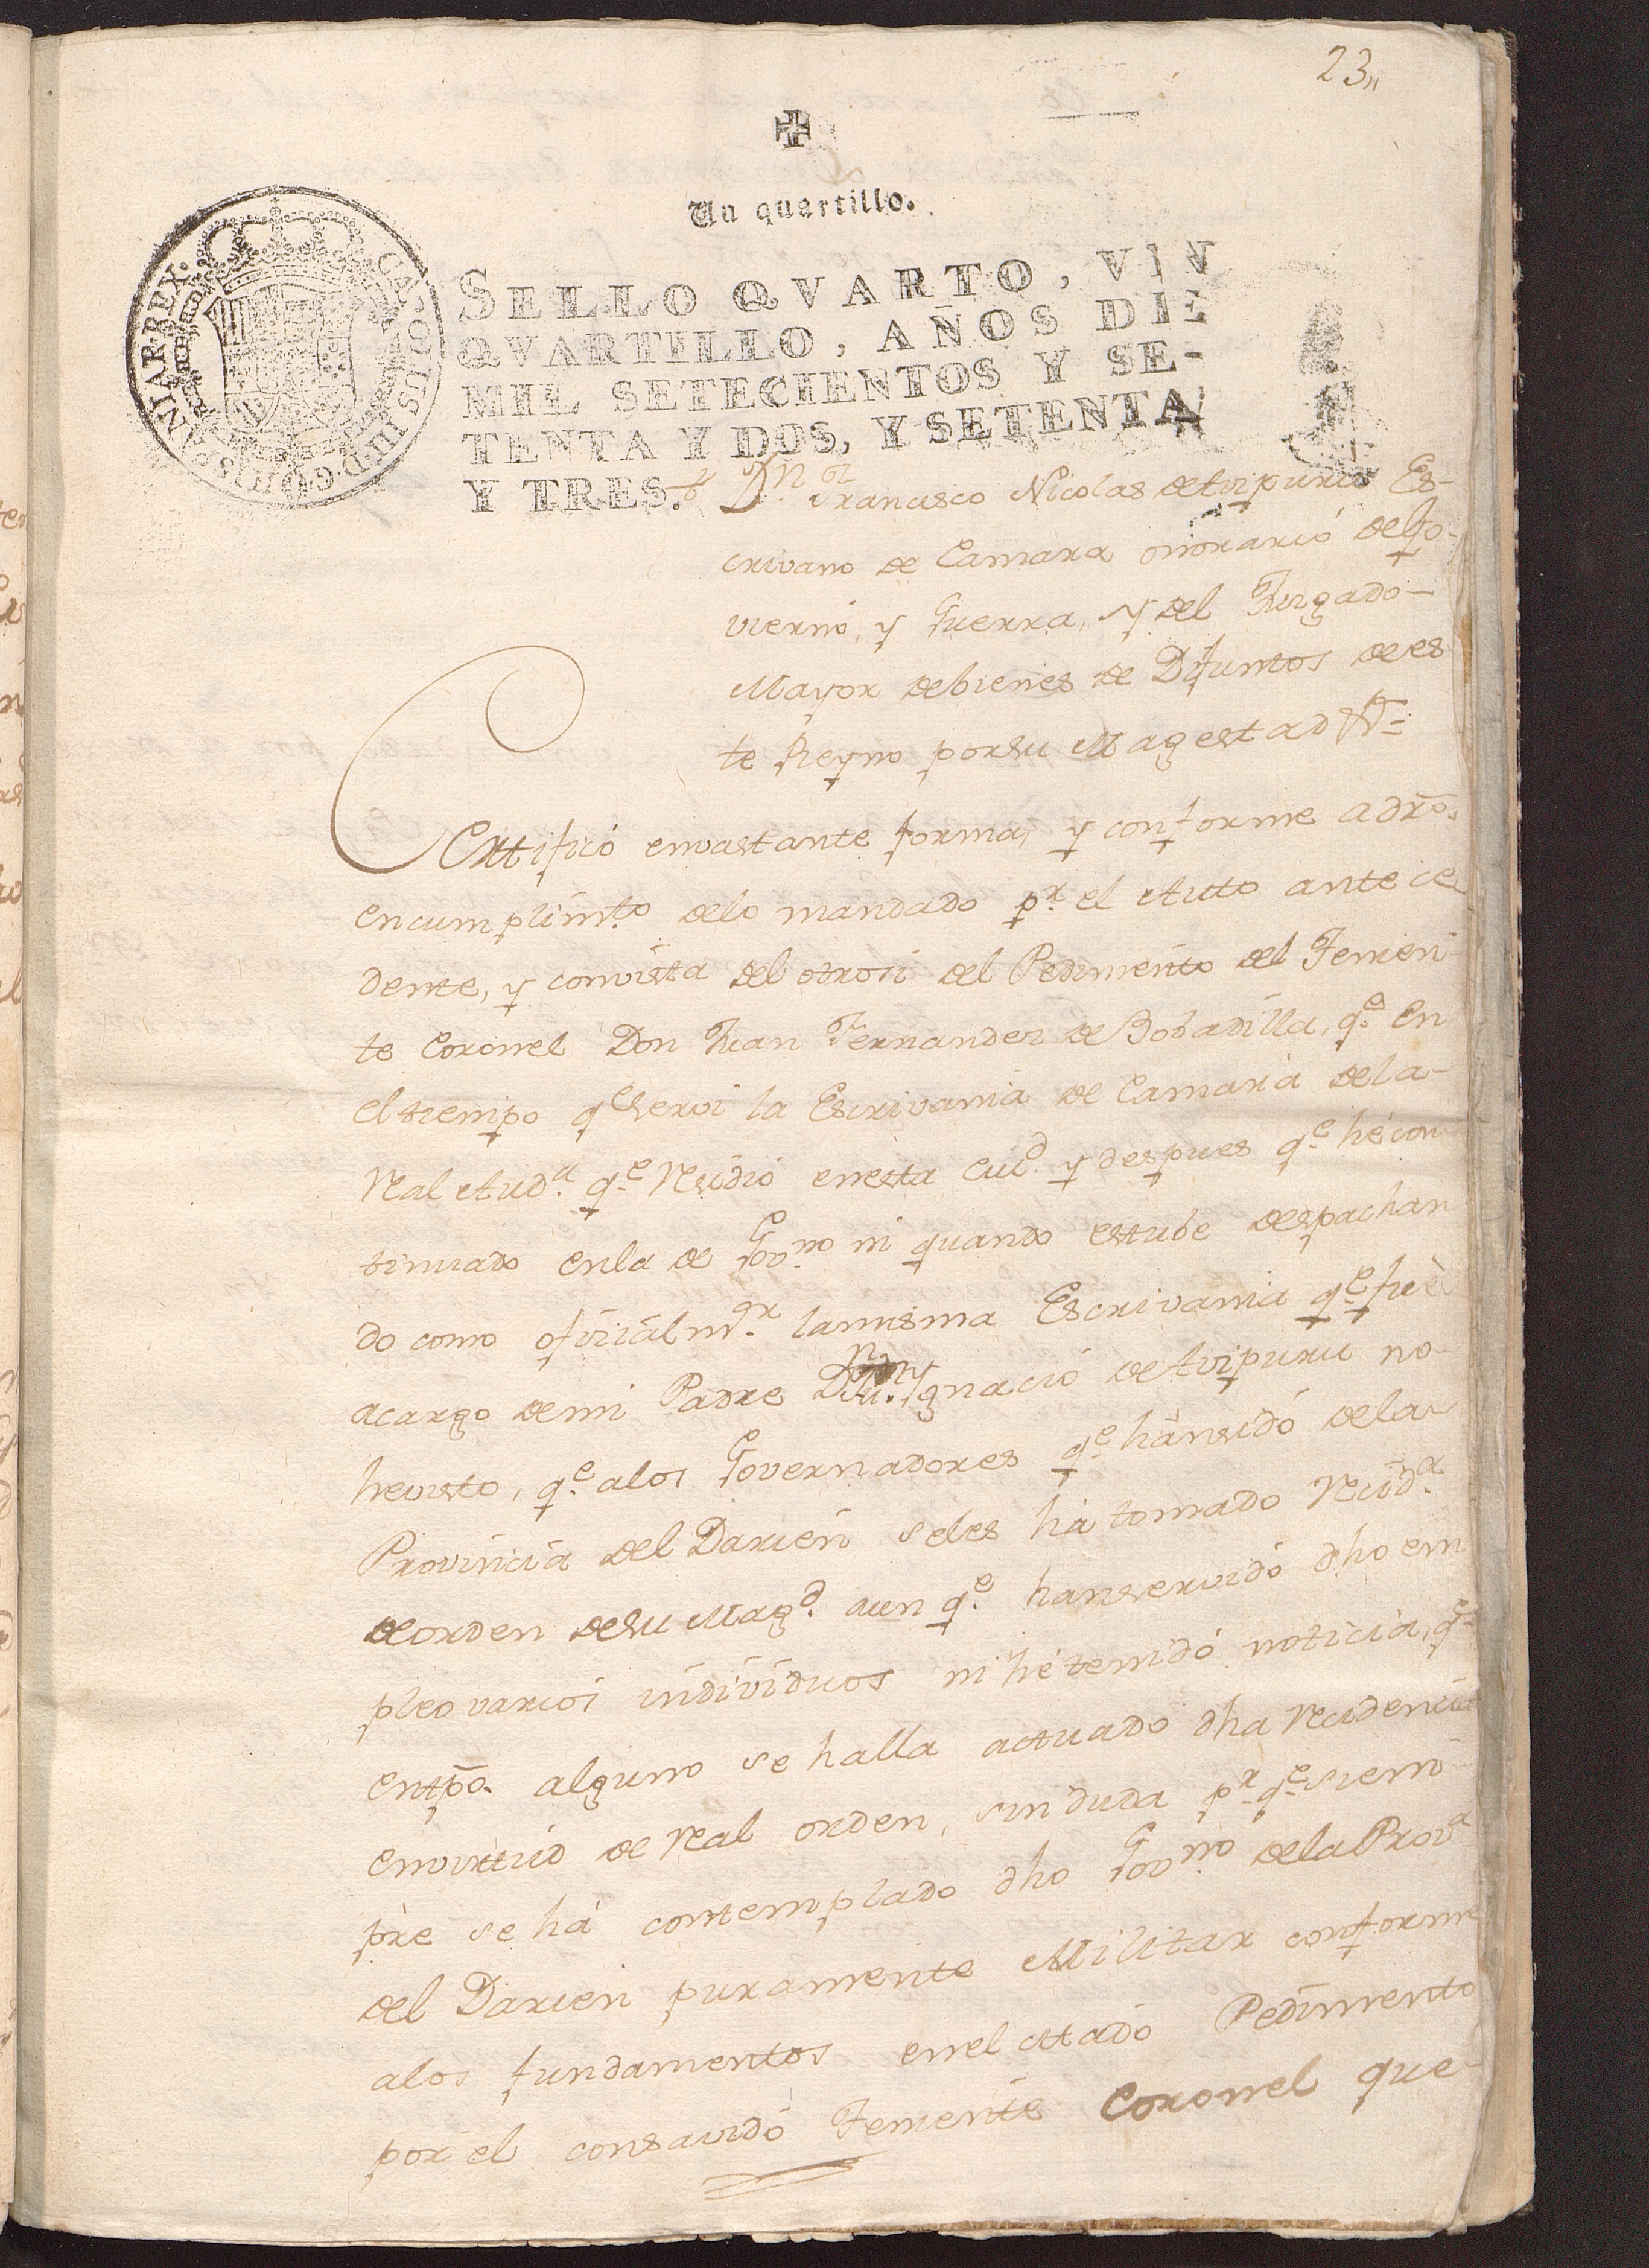 23,,
Un quartillo.
SELLO QVARTO, VN
QVARTILLO, AÑOS DE
MIL SETECIENTOS Y SE-
TENTA Y DOS, Y SETENTA
Y TRES.
CAROLUS III D G HISPANIAR REX.
Dn. Francisco Nicolas de Aizpuru Es-
crivano de Camara onorario de Go-
vierno, y Guerra, y del Juzgado-
Mayor debienes de Difuntos de es-
te Reyno porsu Magestad &=
Certificó envastante forma, y conforme adro.
encumplimto. delo mandado pr. el Auto antece
dente, y convista del otrosi del Pedimento del Tenien
te Coronel Don Juan Fernandez de Bobadilla, qe. en
eltiempo qe serví la Escrivania de Camara dela-
Real Auda. qe. Residió enesta Ciud. y despues qe. hé con
tinuado enla de Govno. ni quando estube despachan
do como oficial mr. lamisma Escrivania qe. fué
acargo demi Padre Dn. Ygnacio de Aizpuru no-
hevisto, qe. alos Governadores qe. hánsidó dela
Provincia del Darien seles há tomado Recida.
deorden desu Magd. aun qe. hanservidó dho em
pleo varios individuos ni hé tenidó noticia, qe.
entpo. alguno se halla actuado dha Recidencia
envirtud de Real orden, sin duda pr. qe. siem
pre se há contemplado dho Govno. dela Prova.
del Darien puramente Militar conforme
alos fundamentos enel citado Pedimento
por el consavidó Teniente Coronel que-